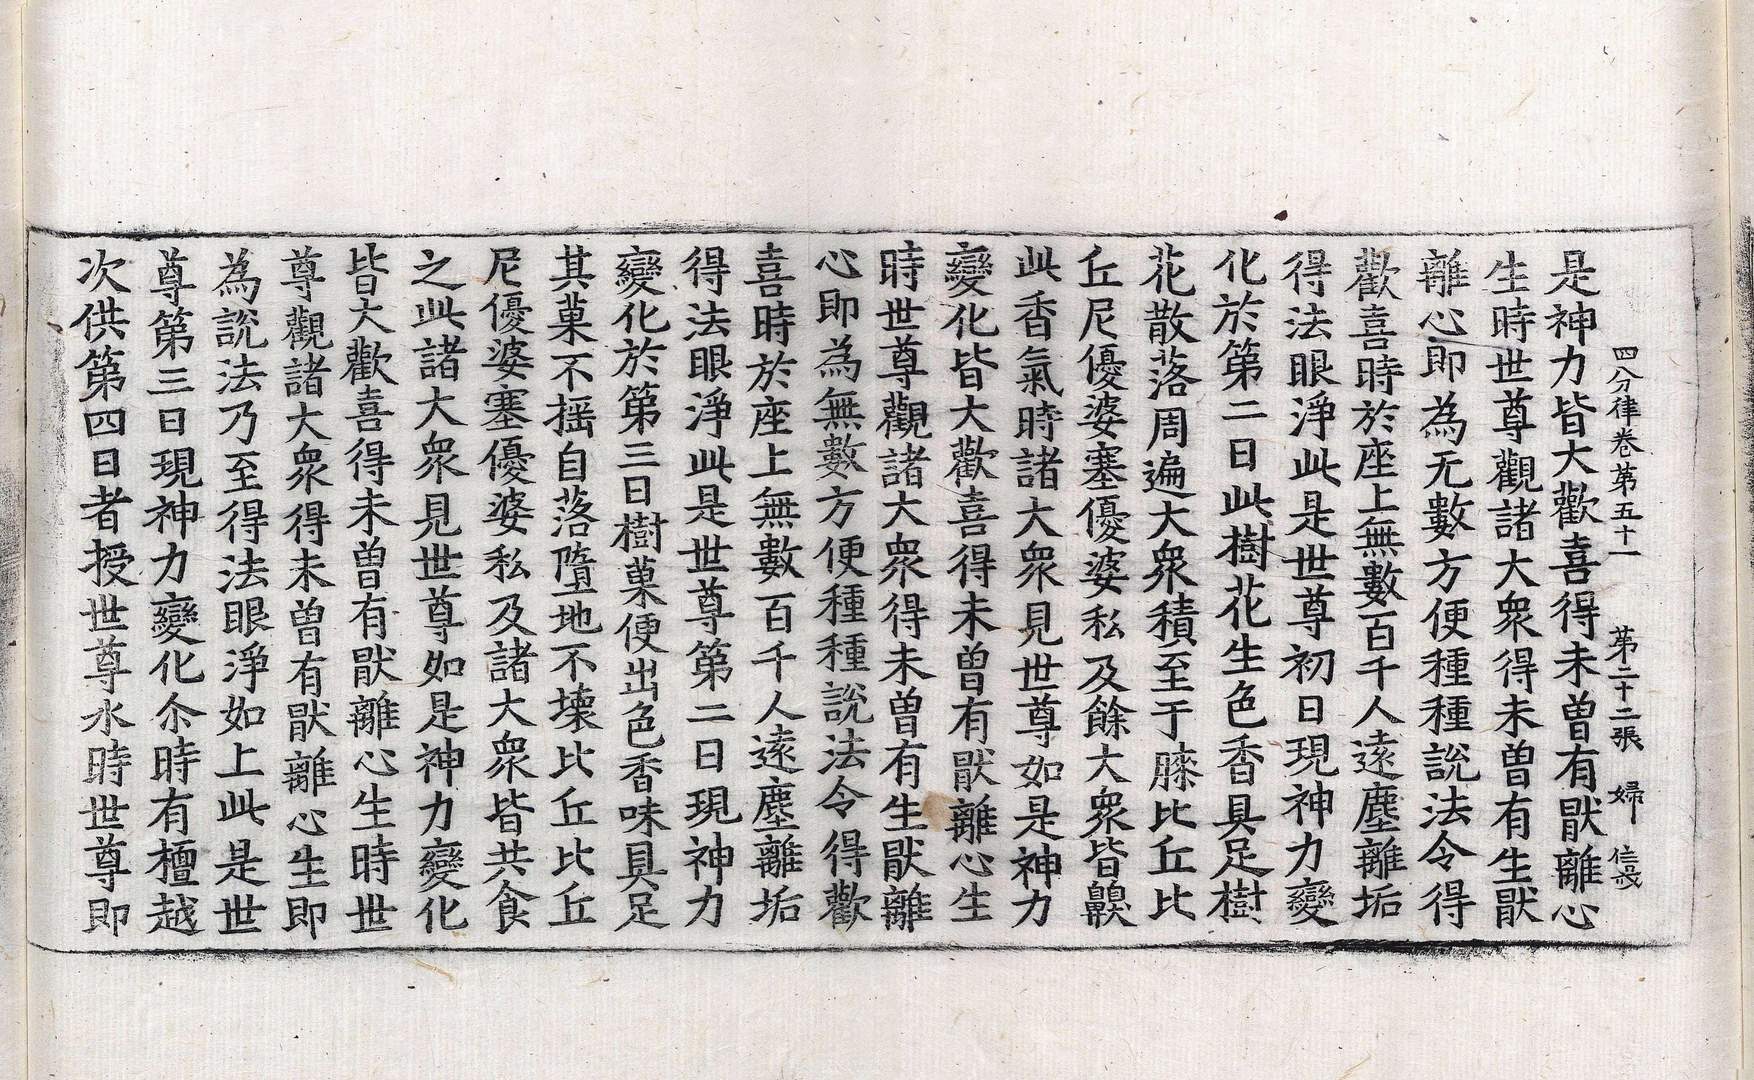 四分律卷第五十一　第二十二張　婦　信戒
是神力皆大歡喜得未曾有猒離心
生時世尊觀諸大衆得未曾有生猒
離心即為无數方便種種說法令得
歡喜時於座上無數百千人遠塵離垢
得法眼淨此是世尊初日現神力變
化於第二日此樹花生色香具足樹
花散落周遍大衆積至于膝比丘比
丘尼優婆塞優婆私及餘大衆皆齅
此香氣時諸大衆見世尊如是神力
變化皆大歡喜得未曾有猒離心生
時世尊觀諸大衆得未曾有生猒離
心即為無數方便種種說法令得歡
喜時於座上無數百千人遠塵離垢
得法眼淨此是世尊第二日現神力
變化於第三日樹菓便出色香味具足
其菓不摇自落墮地不壞比丘比丘
尼優婆塞優婆私及諸大衆皆共食
之此諸大衆見世尊如是神力變化
皆大歡喜得未曾有猒離心生時世
尊觀諸大衆得未曾有猒離心生即
為說法乃至得法眼淨如上此是世
尊第三日現神力變化尒時有檀越
次供第四日者授世尊水時世尊即